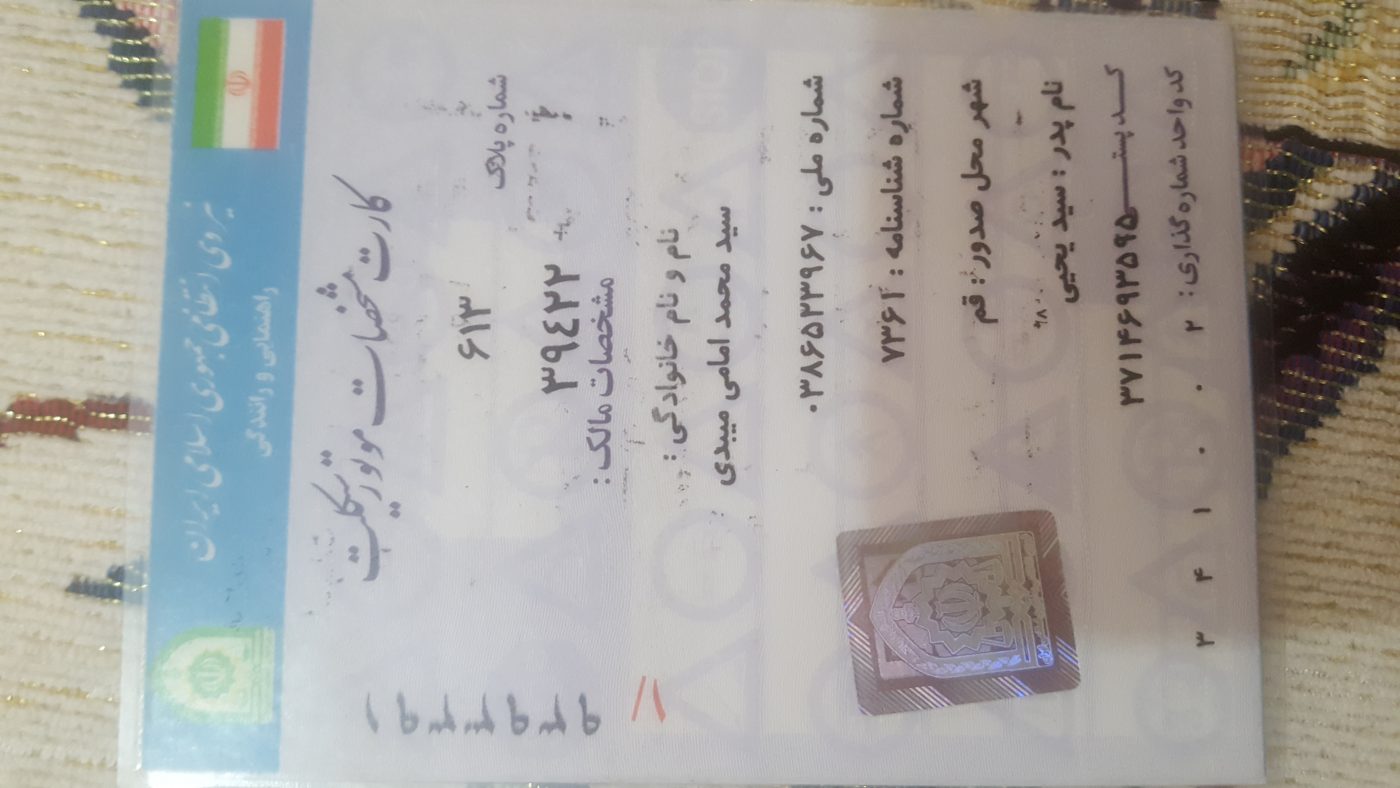 نیروی انتظامی جمهوری اسلامی ایران
راهنمایی و رانندگی
کارت مشخصات موتورسیکلت
شماره پلاک
۶۱۳
۳۹٤۲۲
مشخصات مالک :
نام و نام خانوادگی :
سید محمد امامی میبدی
شماره ملی : ۰۳۸۶۵۲۳۹۶۷
شماره شناسنامه : ۷۳۶۲
شهر محل صدور : قم
نام پدر : سید یحیی
کد پستی ۳۷۱۴۶۹۳۵۹۵
کد واحد شماره گذاری : ۲ ۰ ۰ ۱ ۴ ۳